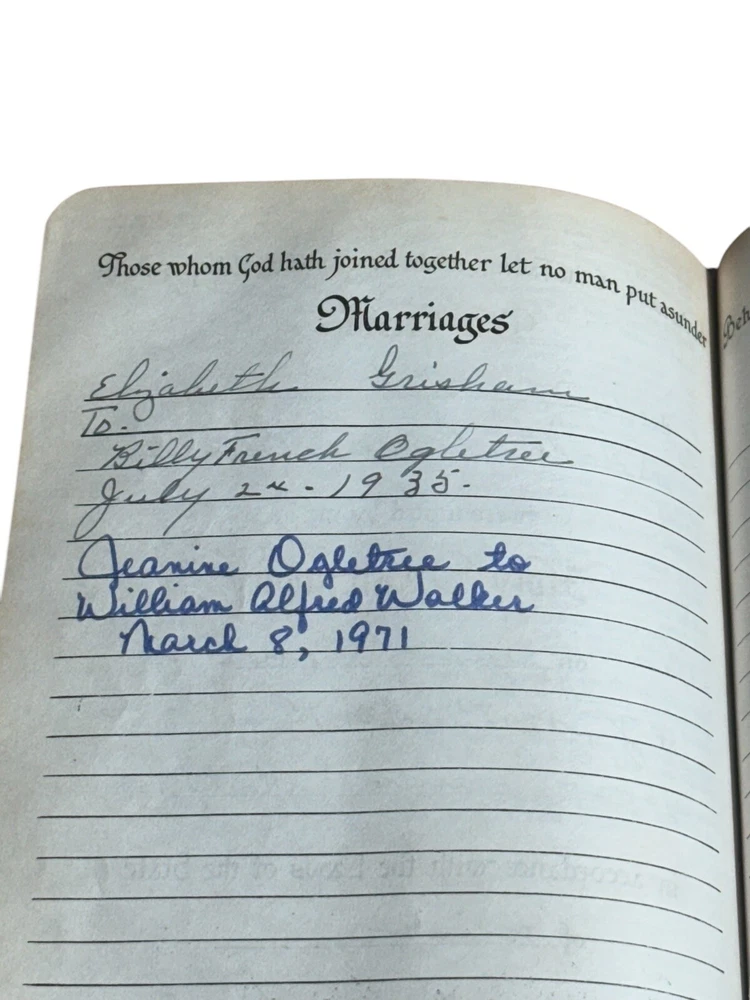 Those whom God hath joined together let no man put asunder
Marriages
Elizabeth Grisham
To.
Billy French Ogletree
July 2nd - 1935.
Jeanine Ogletree to
William Alfred Walker
March 8, 1971
Beh